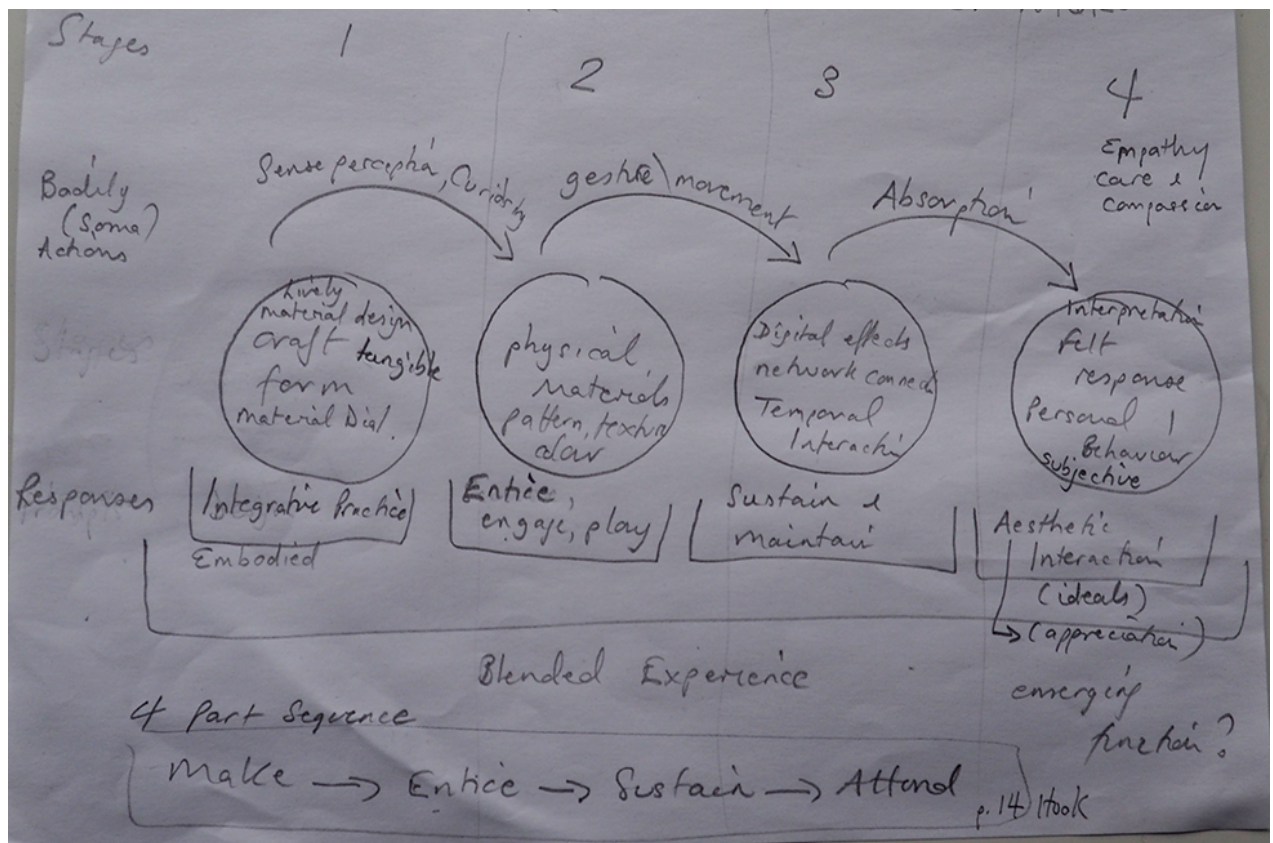 Stages
1
2
3
4
Bodily
(Soma)
Actions
Sense percepha, Curiosity
gesture\movement
Absorption
Empathy
care &
compassion
Lively
material design
craft tangible
form
material Dial.
physical
Materials
pattern, texture
colour
Digital effects
network connec
Temporal
Interacti
Interpretation
felt
response
Personal |
Behaviour
subjective
Stages
Responses
Integrative Practice
Embodied
Entice,
engage, play
Sustain &
maintain
Aesthetic
Interaction
(ideals)
(appreciation)
Blended Experience
emerging
function?
4 Part Sequence
Make → Entice → Sustain → Attend
p.14 Hook